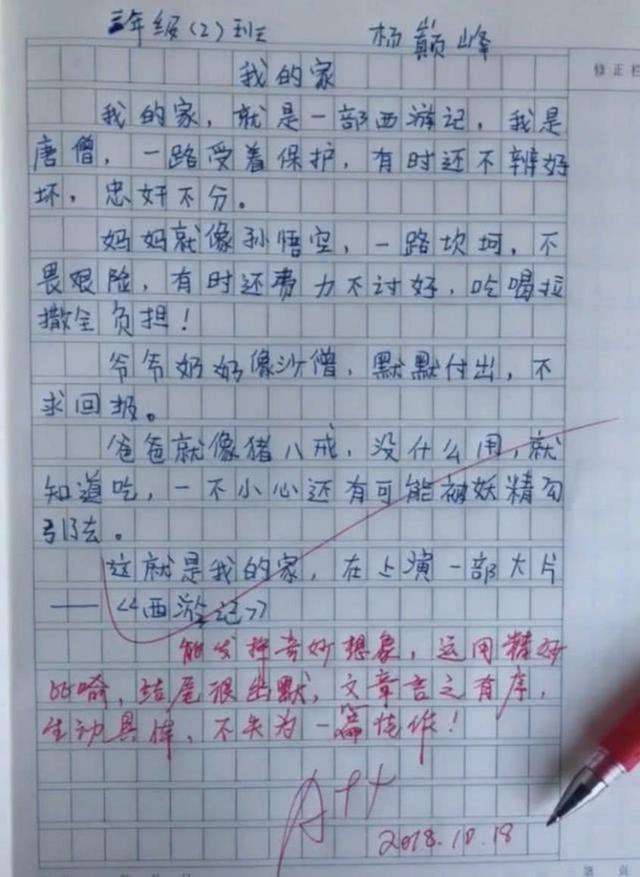 三年级(2)班 杨巅峰
修正栏
我的家
我的家,就是一部西游记,我是
唐僧,一路受着保护,有时还不辨好
坏,忠奸不分。
妈妈就像孙悟空,一路坎坷,不
畏艰险,有时还费力不讨好,吃喝拉
撒全负担!
爷爷奶奶像沙僧,默默付出,不
求回报。
爸爸就像猪八戒,没什么用,就
知道吃,一不小心还有可能被妖精勾
引了去。
这就是我的家,在上演一部大片
——《西游记》
能发挥奇妙想象,运用精妙
比喻,结尾很幽默,文章言之有序,
生动具体,不失为一篇佳作!
A++
2018.10.18
第 页